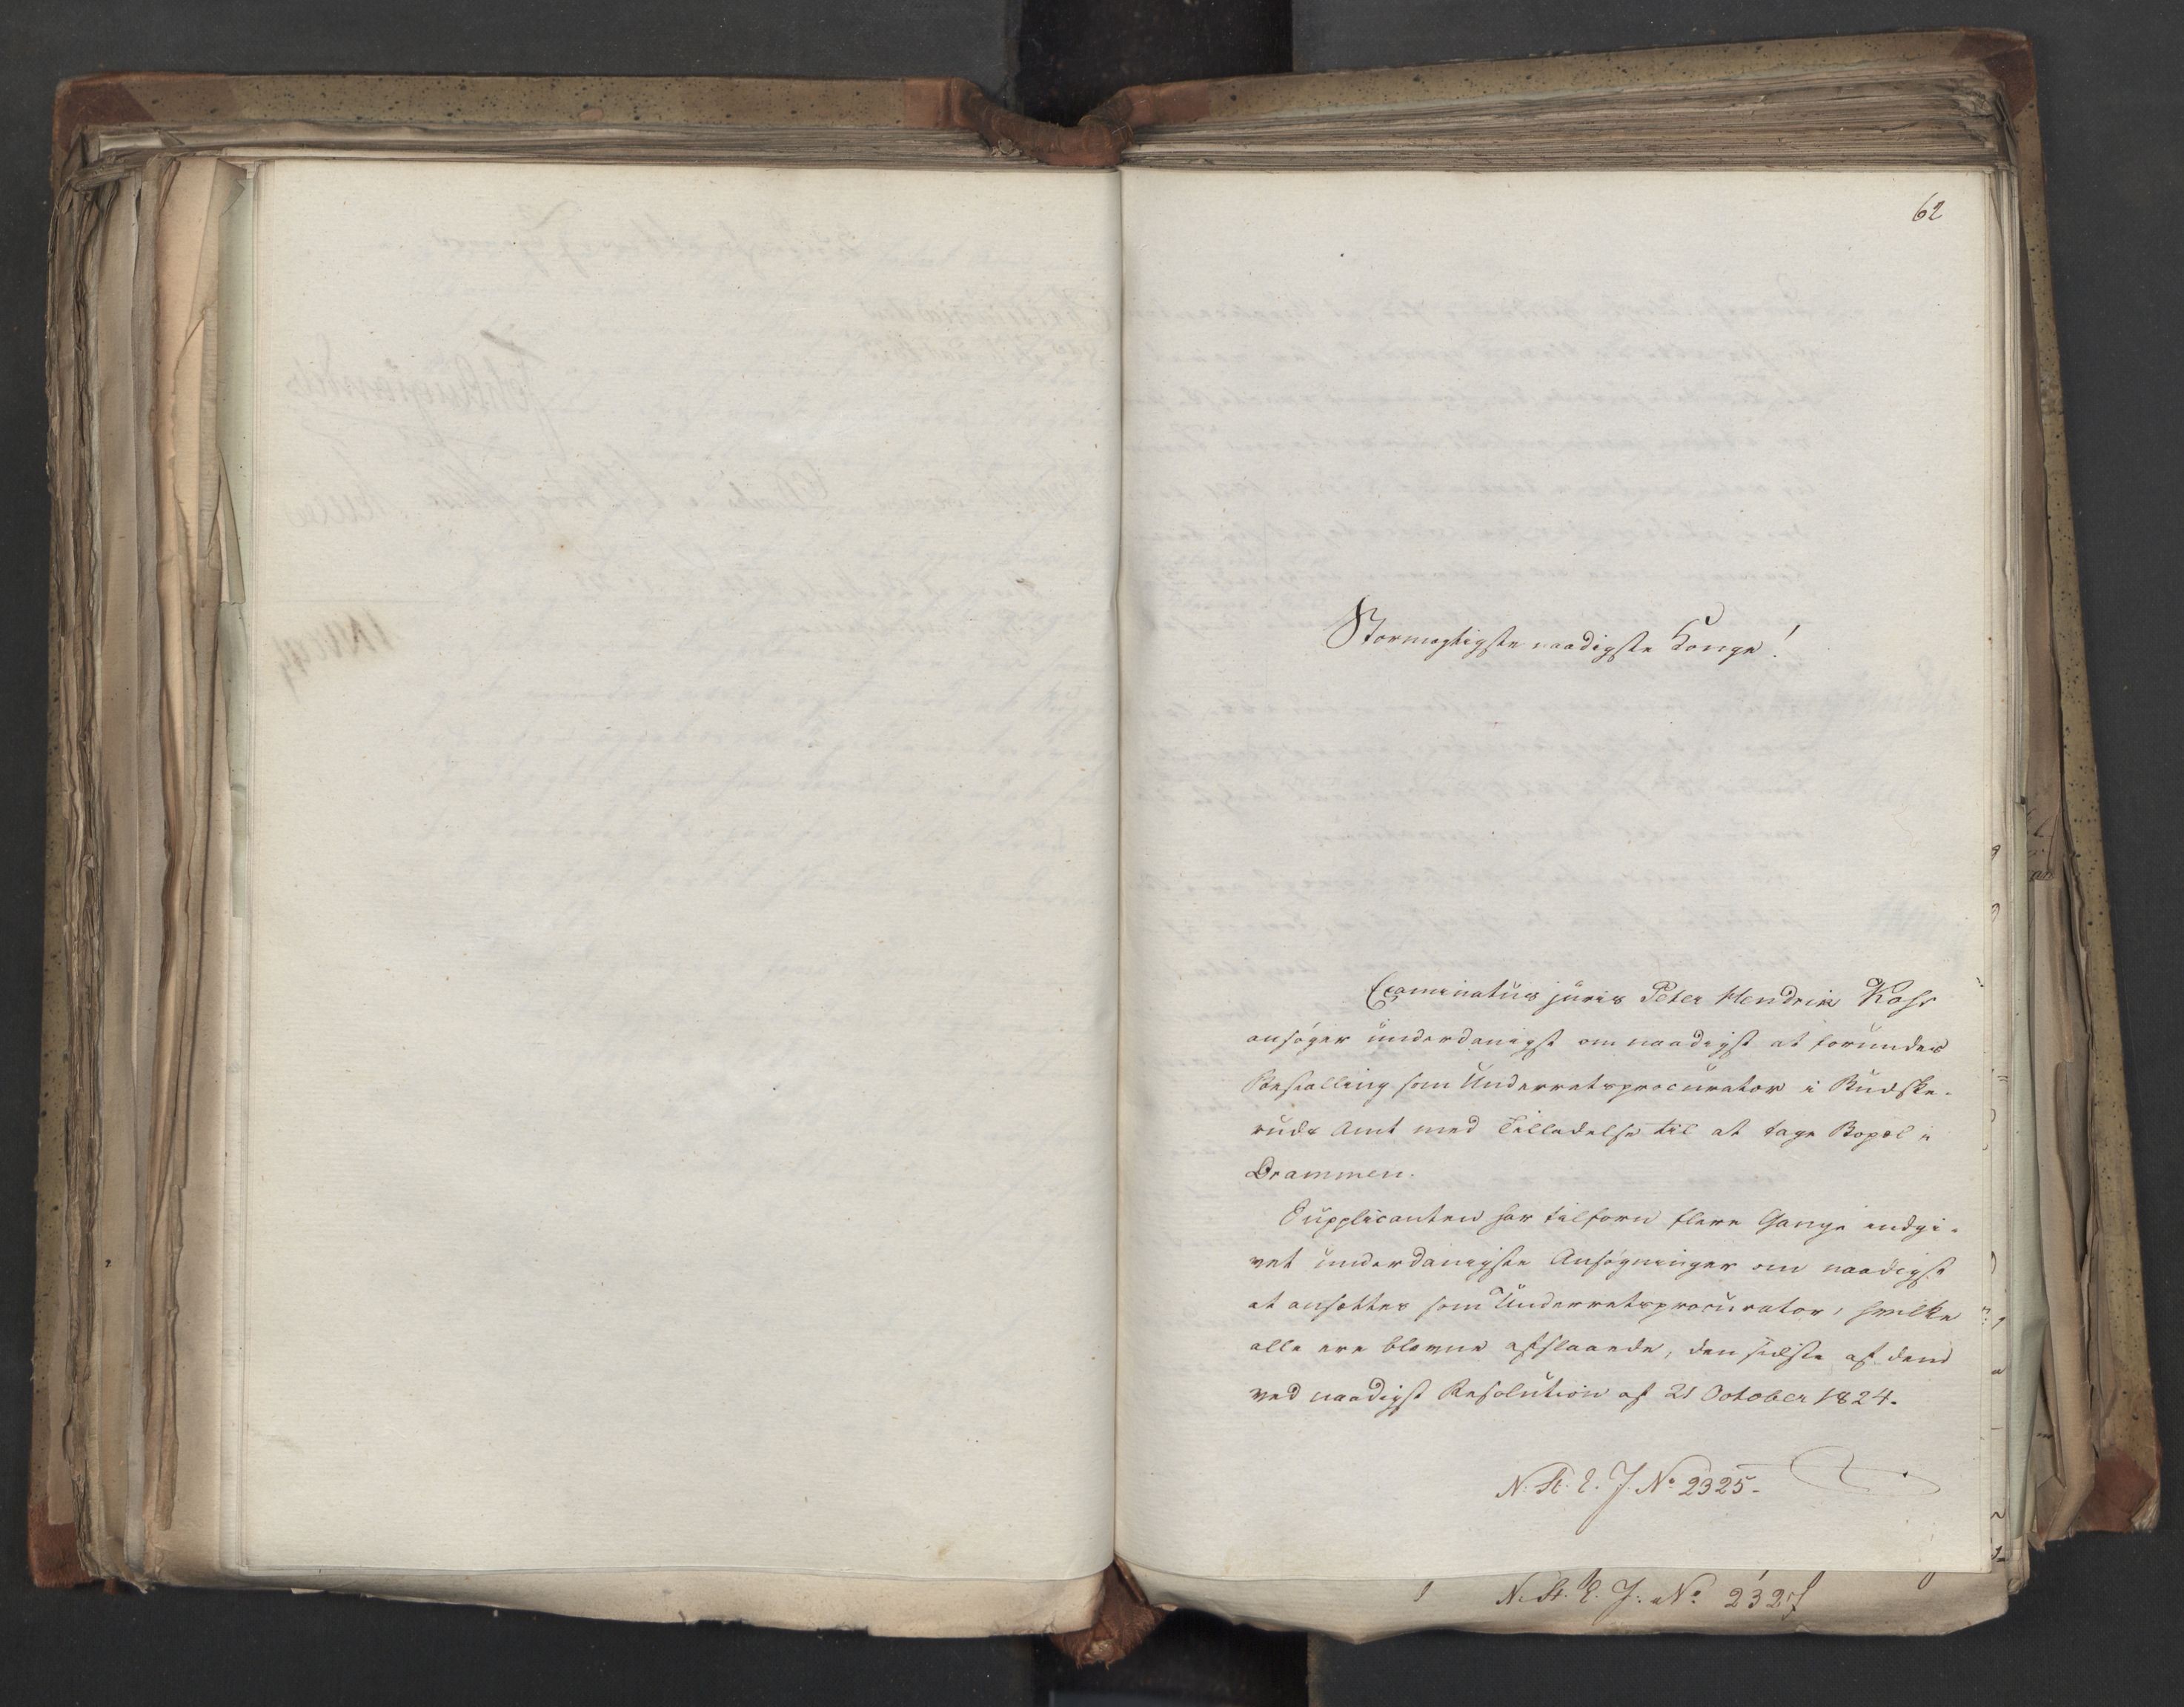 62
Stormægtigste naadigste Konge!
Examinatus juris Peter Hendrik Koss
ansøger underdanigst om naadigst at forundes
Bestalling som Underretsprocurator i Budske-
ruds Amt med Tilladelse til at tage Bopæl i
Drammen.
Supplicanten har tilforn flere Gange indgi-
vet underdanigste Ansøgninger om naadigst
at ansættes som Underretsprocurator, hvilke
alle ere blevne afslaaede, den sidste af dem
ved naadigst Resolution af 21 October 1824.
N. St. E. J. No 2325-
N. St. E. J. No 232